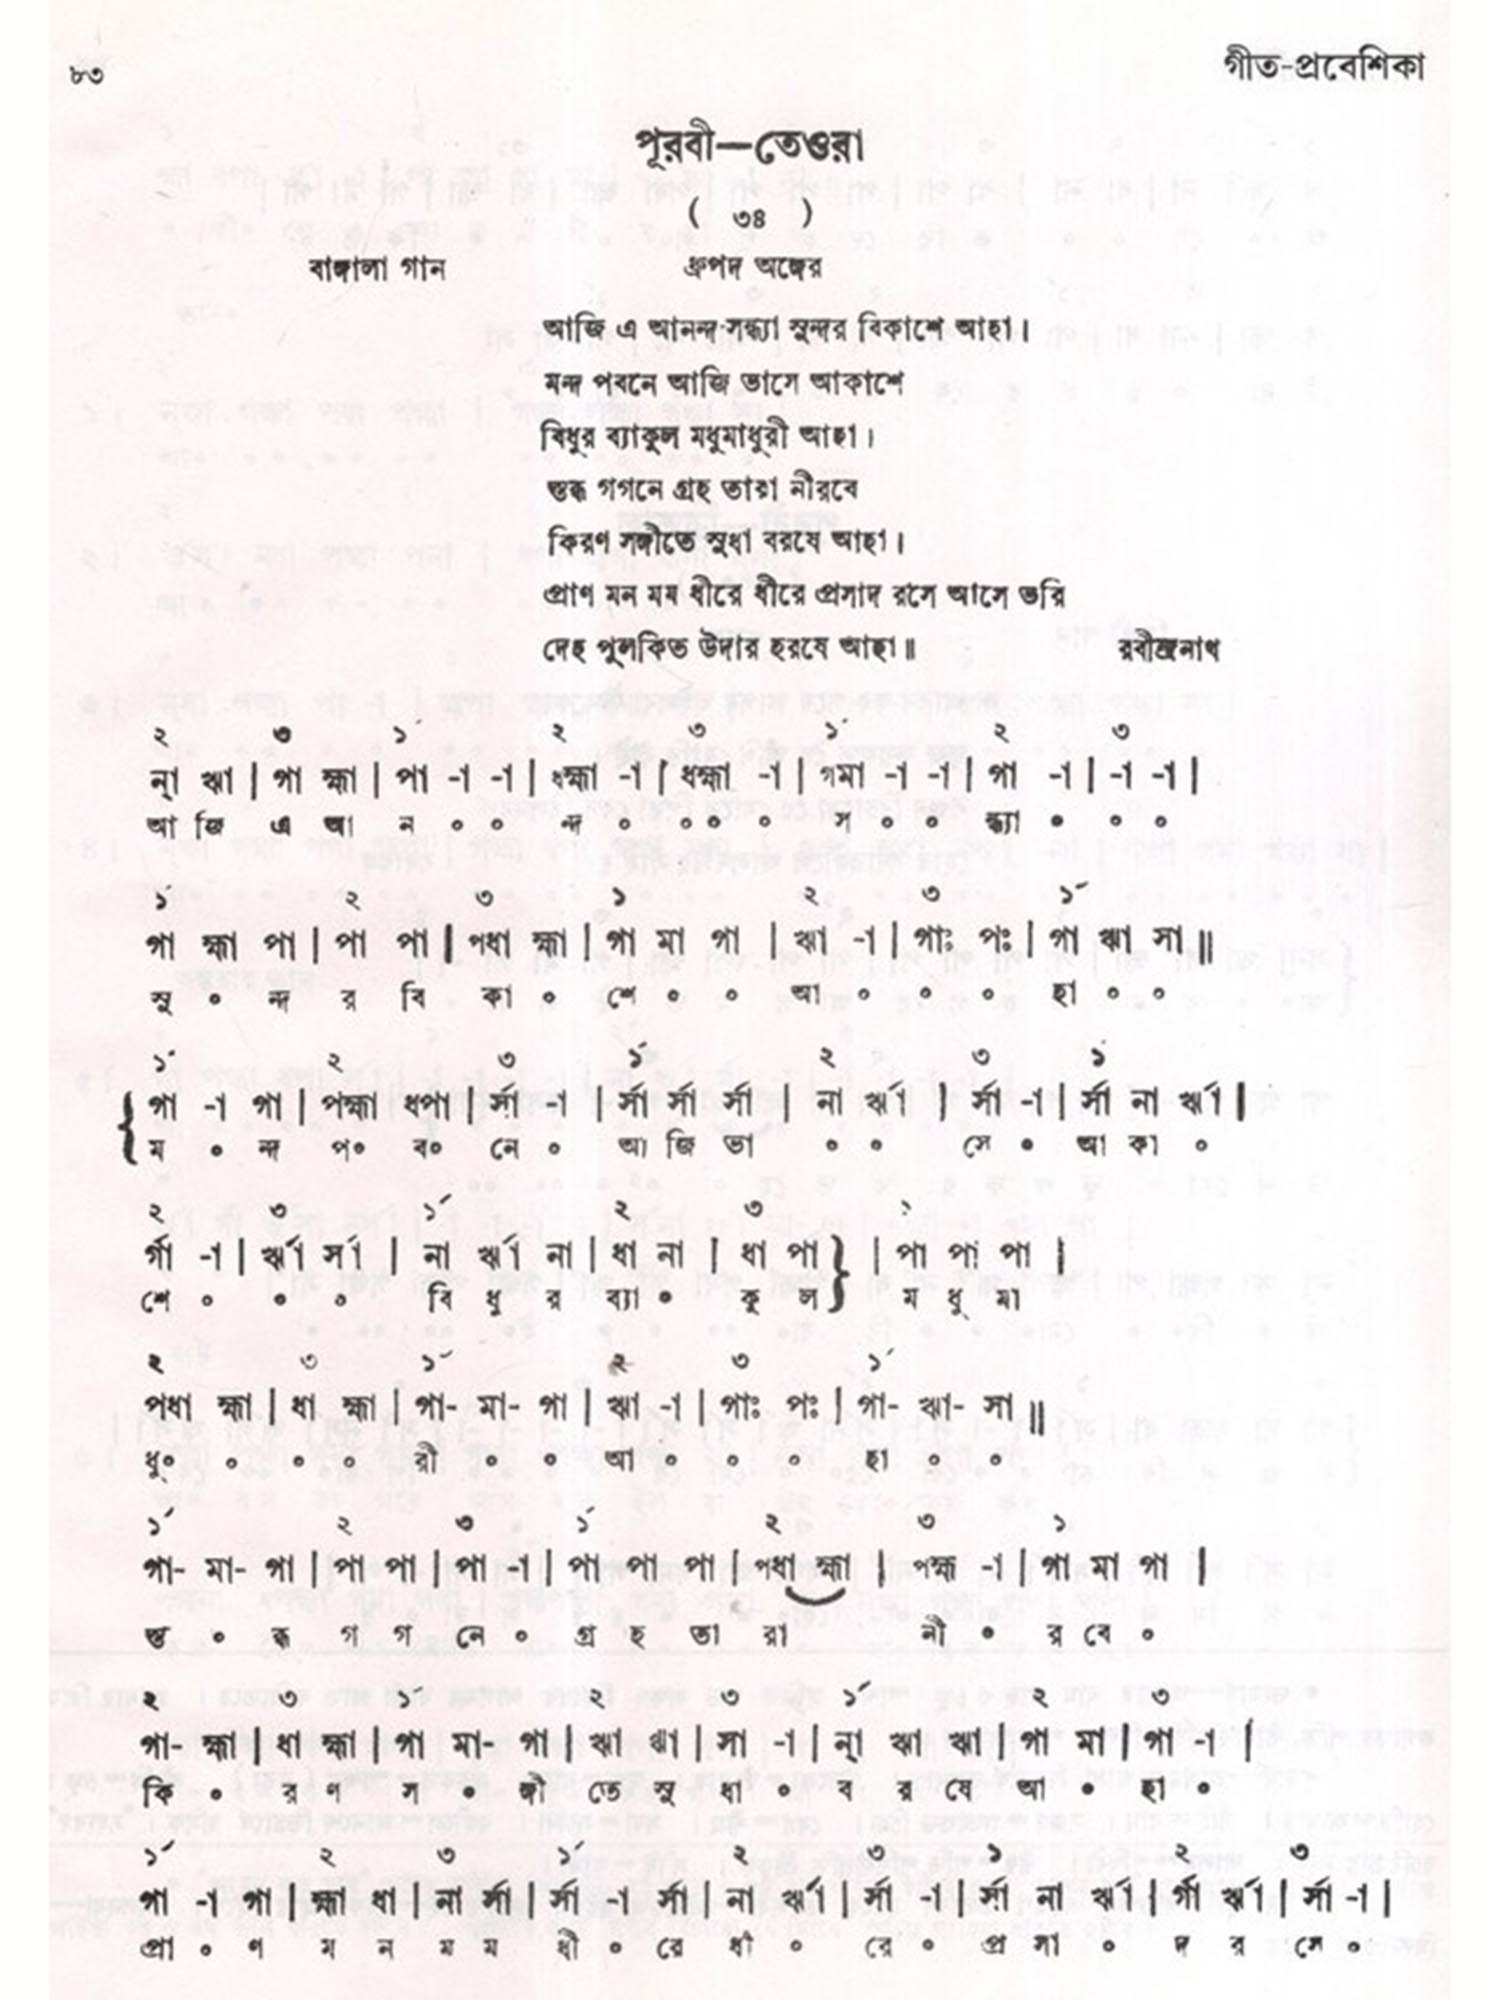 ৮৩ গীত-প্রবেশিকা
পূরবী—তেওরা
( ৩৪ )
বাঙ্গালা গান ধ্রুপদ অঙ্গের
আজি এ আনন্দ-সন্ধ্যা সুন্দর বিকাশে আহা।
মন্দ পবনে আজি ভাসে আকাশে
বিধুর ব্যাকুল মধুমাধুরী আহা।
স্তব্ধ গগনে গ্রহ তারা নীরবে
কিরণ সঙ্গীতে সুধা বরষে আহা।
প্রাণ মন মম ধীরে ধীরে প্রসাদ রসে আসে ভরি
দেহ পুলকিত উদার হরষে আহা॥ রবীন্দ্রনাথ
২ ৩ ১´ ২ ৩ ১´ ২ ৩
ন্া ঋা | গা হ্মা | পা -া -া | ধহ্মা -া | ধহ্মা -া | গমা -া -া | গা -া | -া -া |
আ জি এ আ ন ० ० ন্দ ० ० ० ० স ० ० ন্ধ্যা ० ० ०
১´ ২ ৩ ১ ২ ৩ ১´
গা হ্মা পা | পা পা | পধা হ্মা | গা মা গা | ঋা -া | গাঃ পঃ | গা ঋা সা ॥
সু ० ন্দ র বি কা ० শে ० ० আ ० ० ० হা ० ०
১´ ২ ৩ ১´ ২ ৩ ১
{ গা -া গা | পহ্মা ধপা | র্সা -া | র্সা র্সা র্সা | না র্ঋা | র্সা -া | র্সা না র্ঋা |
ম ० ন্দ প० ব० নে ० আ জি ভা ० ० সে ० আ কা ०
২ ৩ ১´ ২ ৩ ১
র্গা -া | র্ঋা র্সা | না র্ঋা না | ধা না | ধা পা } | পা পা পা |
শে ० ० ० বি ধু র ব্যা ० কু ল } ম ধু মা
২ ৩ ১´ ২ ৩ ১´
পধা হ্মা | ধা হ্মা | গা- মা- গা | ঋা -া | গাঃ পঃ | গা- ঋা- সা ॥
ধু० ० ० ० রী ० ० আ ० ० ० হা ० ०
১´ ২ ৩ ১´ ২ ৩ ১
গা- মা- গা | পা পা | পা -া | পা পা পা | পধা হ্মা | পহ্ম -া | গা মা গা |
স্ত ० ব্ধ গ গ নে ० গ্র হ তা রা নী ० র বে ०
২ ৩ ১ ২ ৩ ১´ ২ ৩
গা- হ্মা | ধা হ্মা | গা মা- গা | ঋা ঋা | সা -া | ন্া ঋা ঋা | গা মা | গা -া |
কি ० র ণ স ० ঙ্গী তে সু ধা ० ব র ষে আ ० হা ०
১´ ২ ৩ ১´ ২ ৩ ১ ২ ৩
গা -া গা | হ্মা ধা | না র্সা | র্সা -া র্সা | না র্ঋা | র্সা -া | র্সা না র্ঋা | র্গা র্ঋা | র্সা -া |
প্রা ० ণ ম ন ম ম ধী ० রে ধী ० রে ० প্র সা ० দ র সে ०